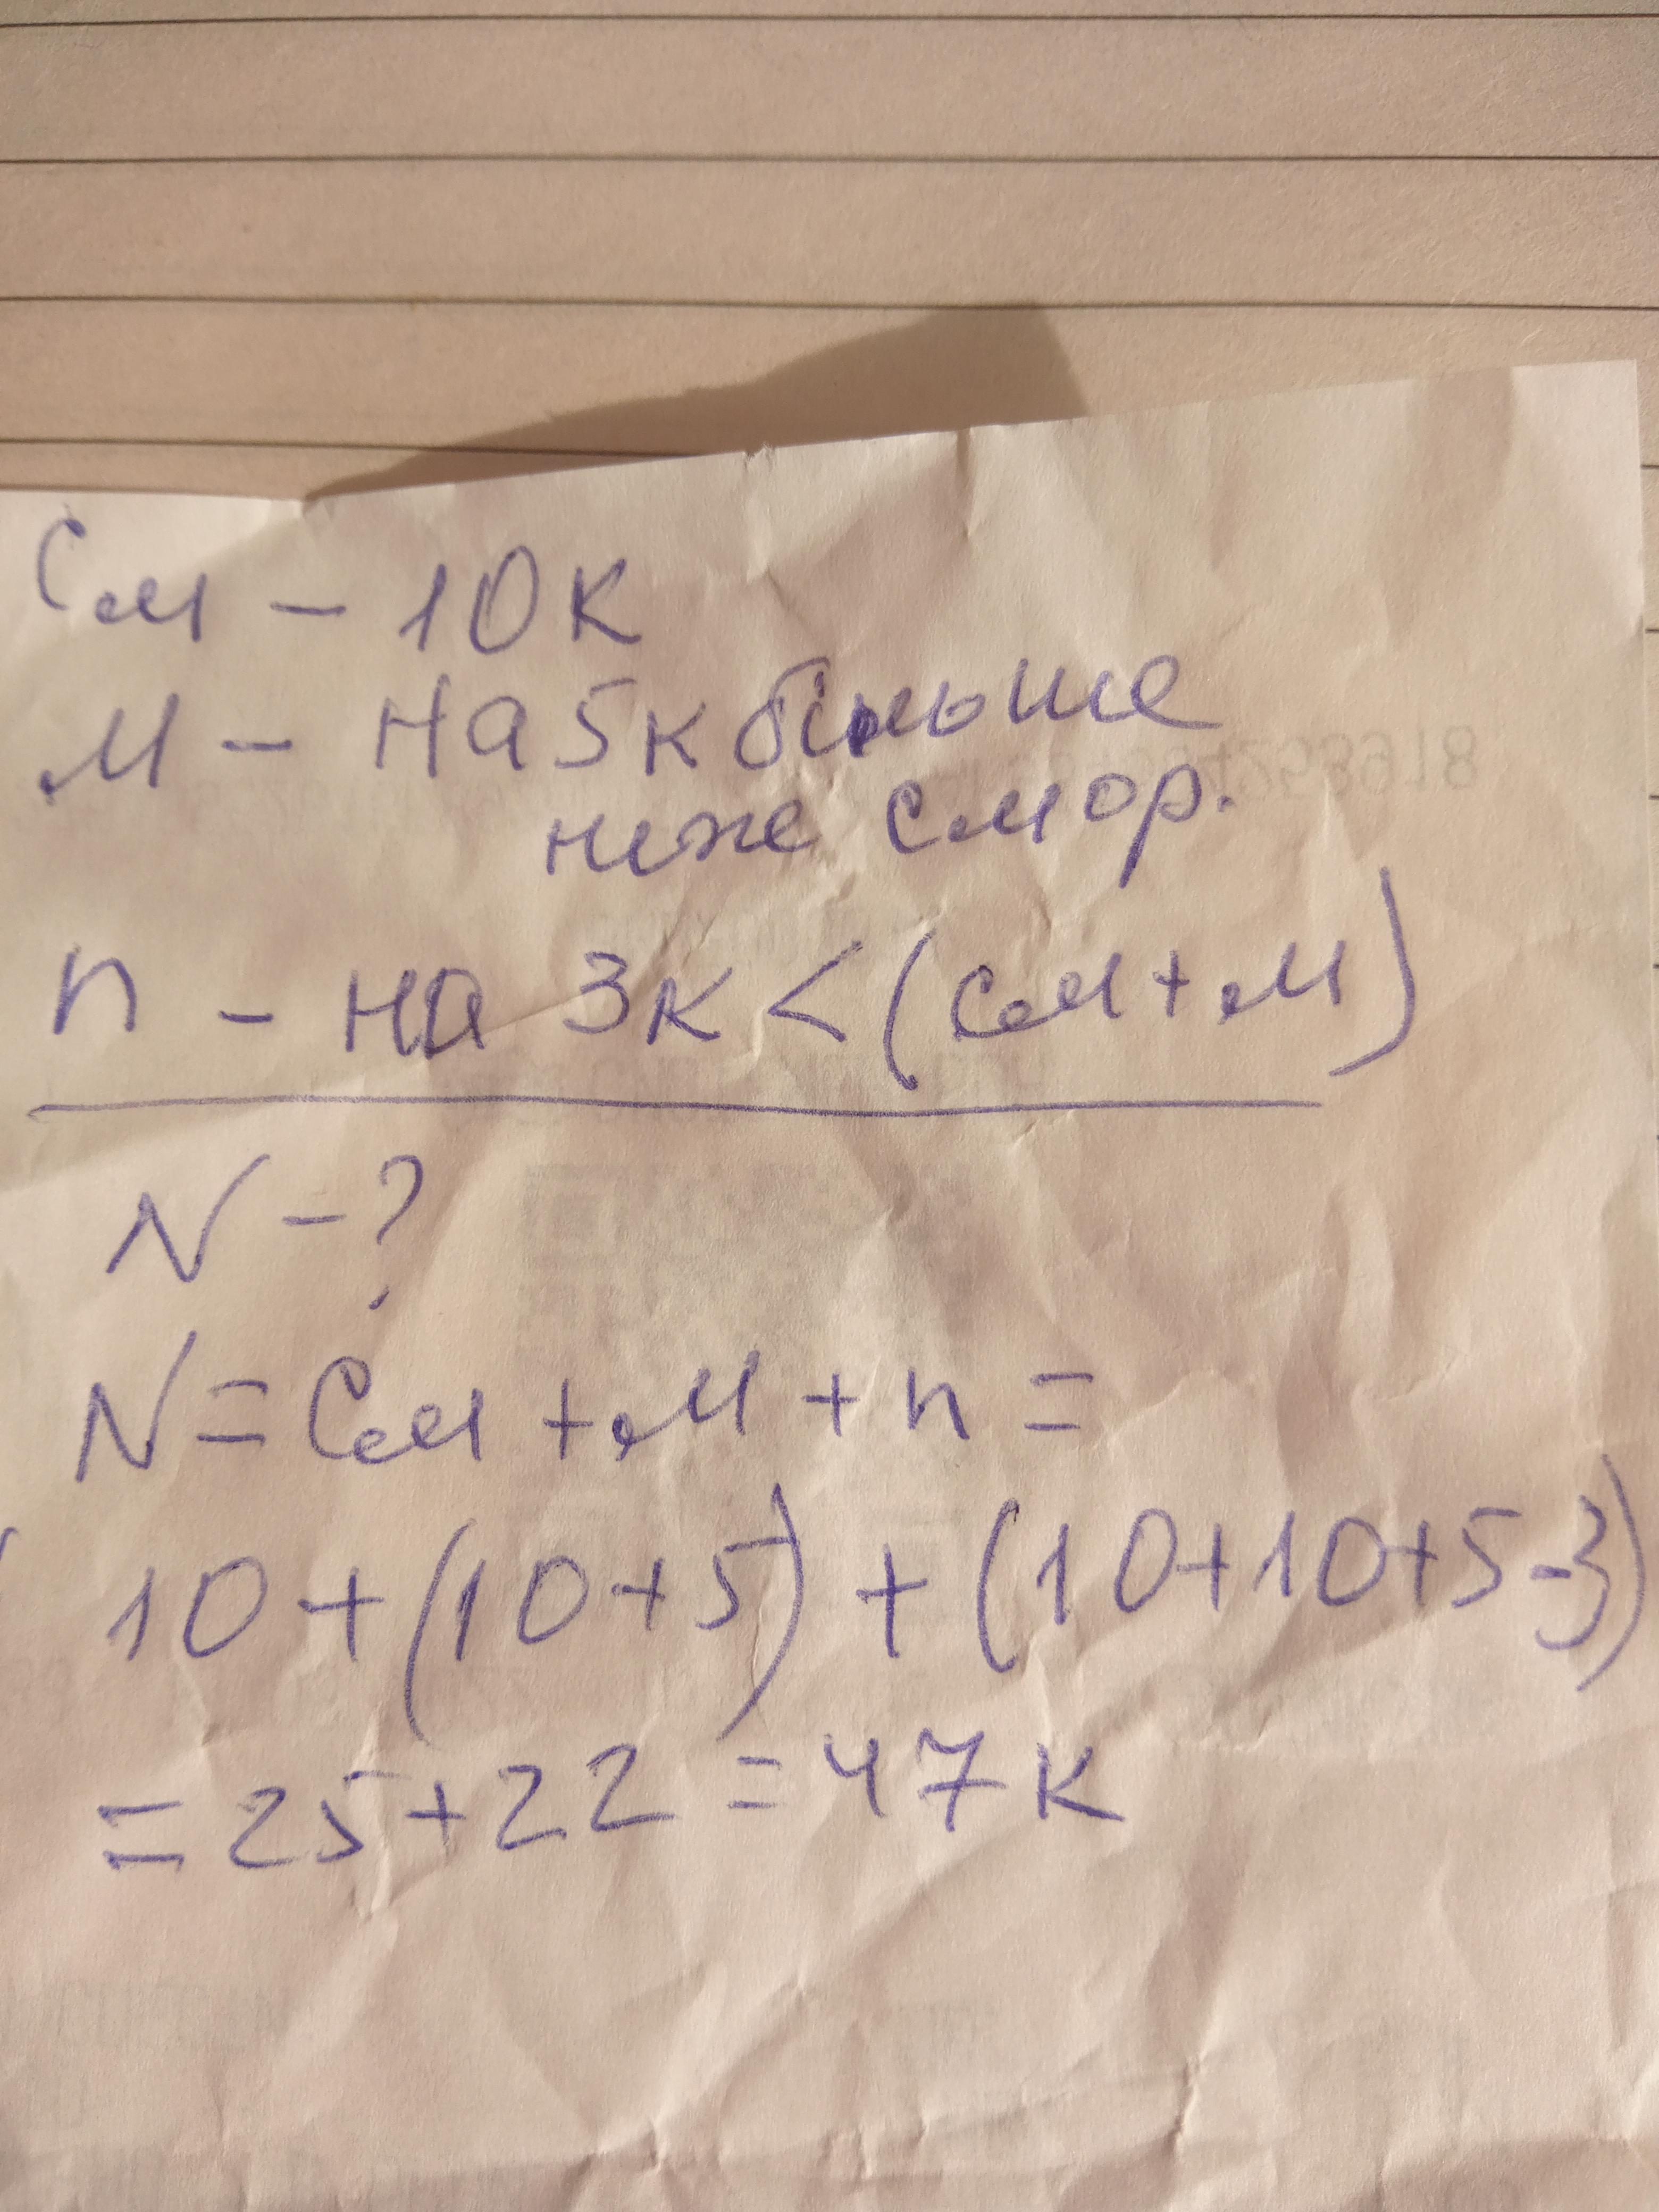 См - 10к
М - на 5к більше
ніже смор.
п - на 3к < (См + М)
N - ?
N = См + М + п =
10 + (10+5) + (10+10+5-3)
= 25 + 22 = 47 к